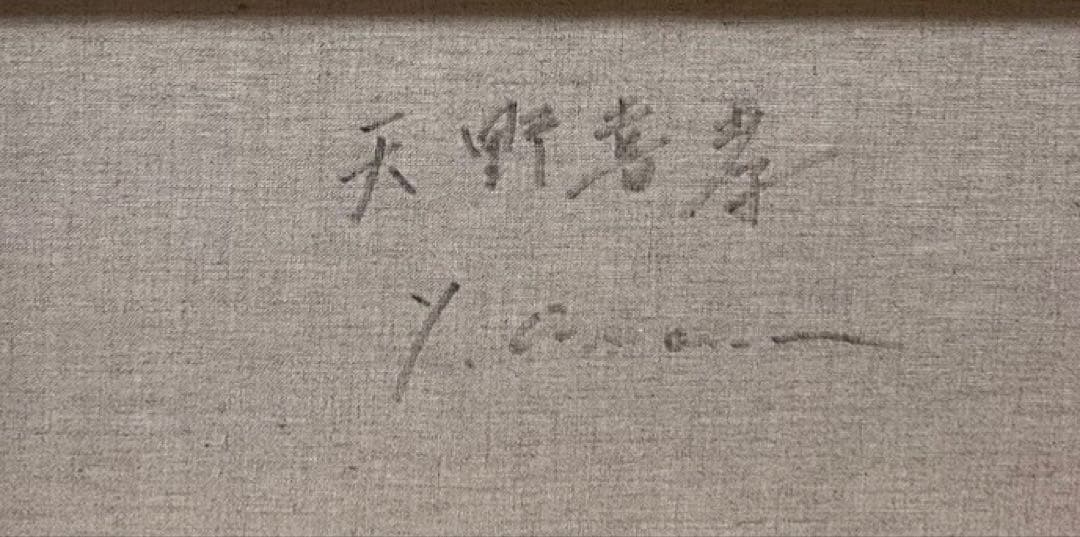 天野喜孝
Y. Amano